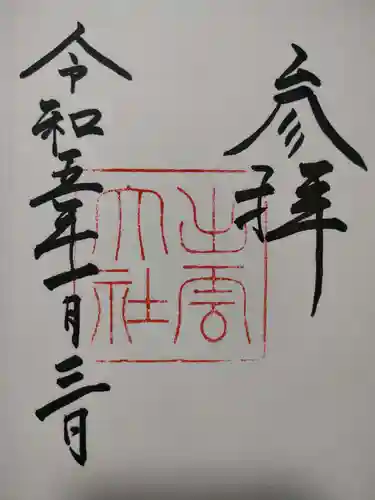 参拝
出雲
大社
令和五年一月三日